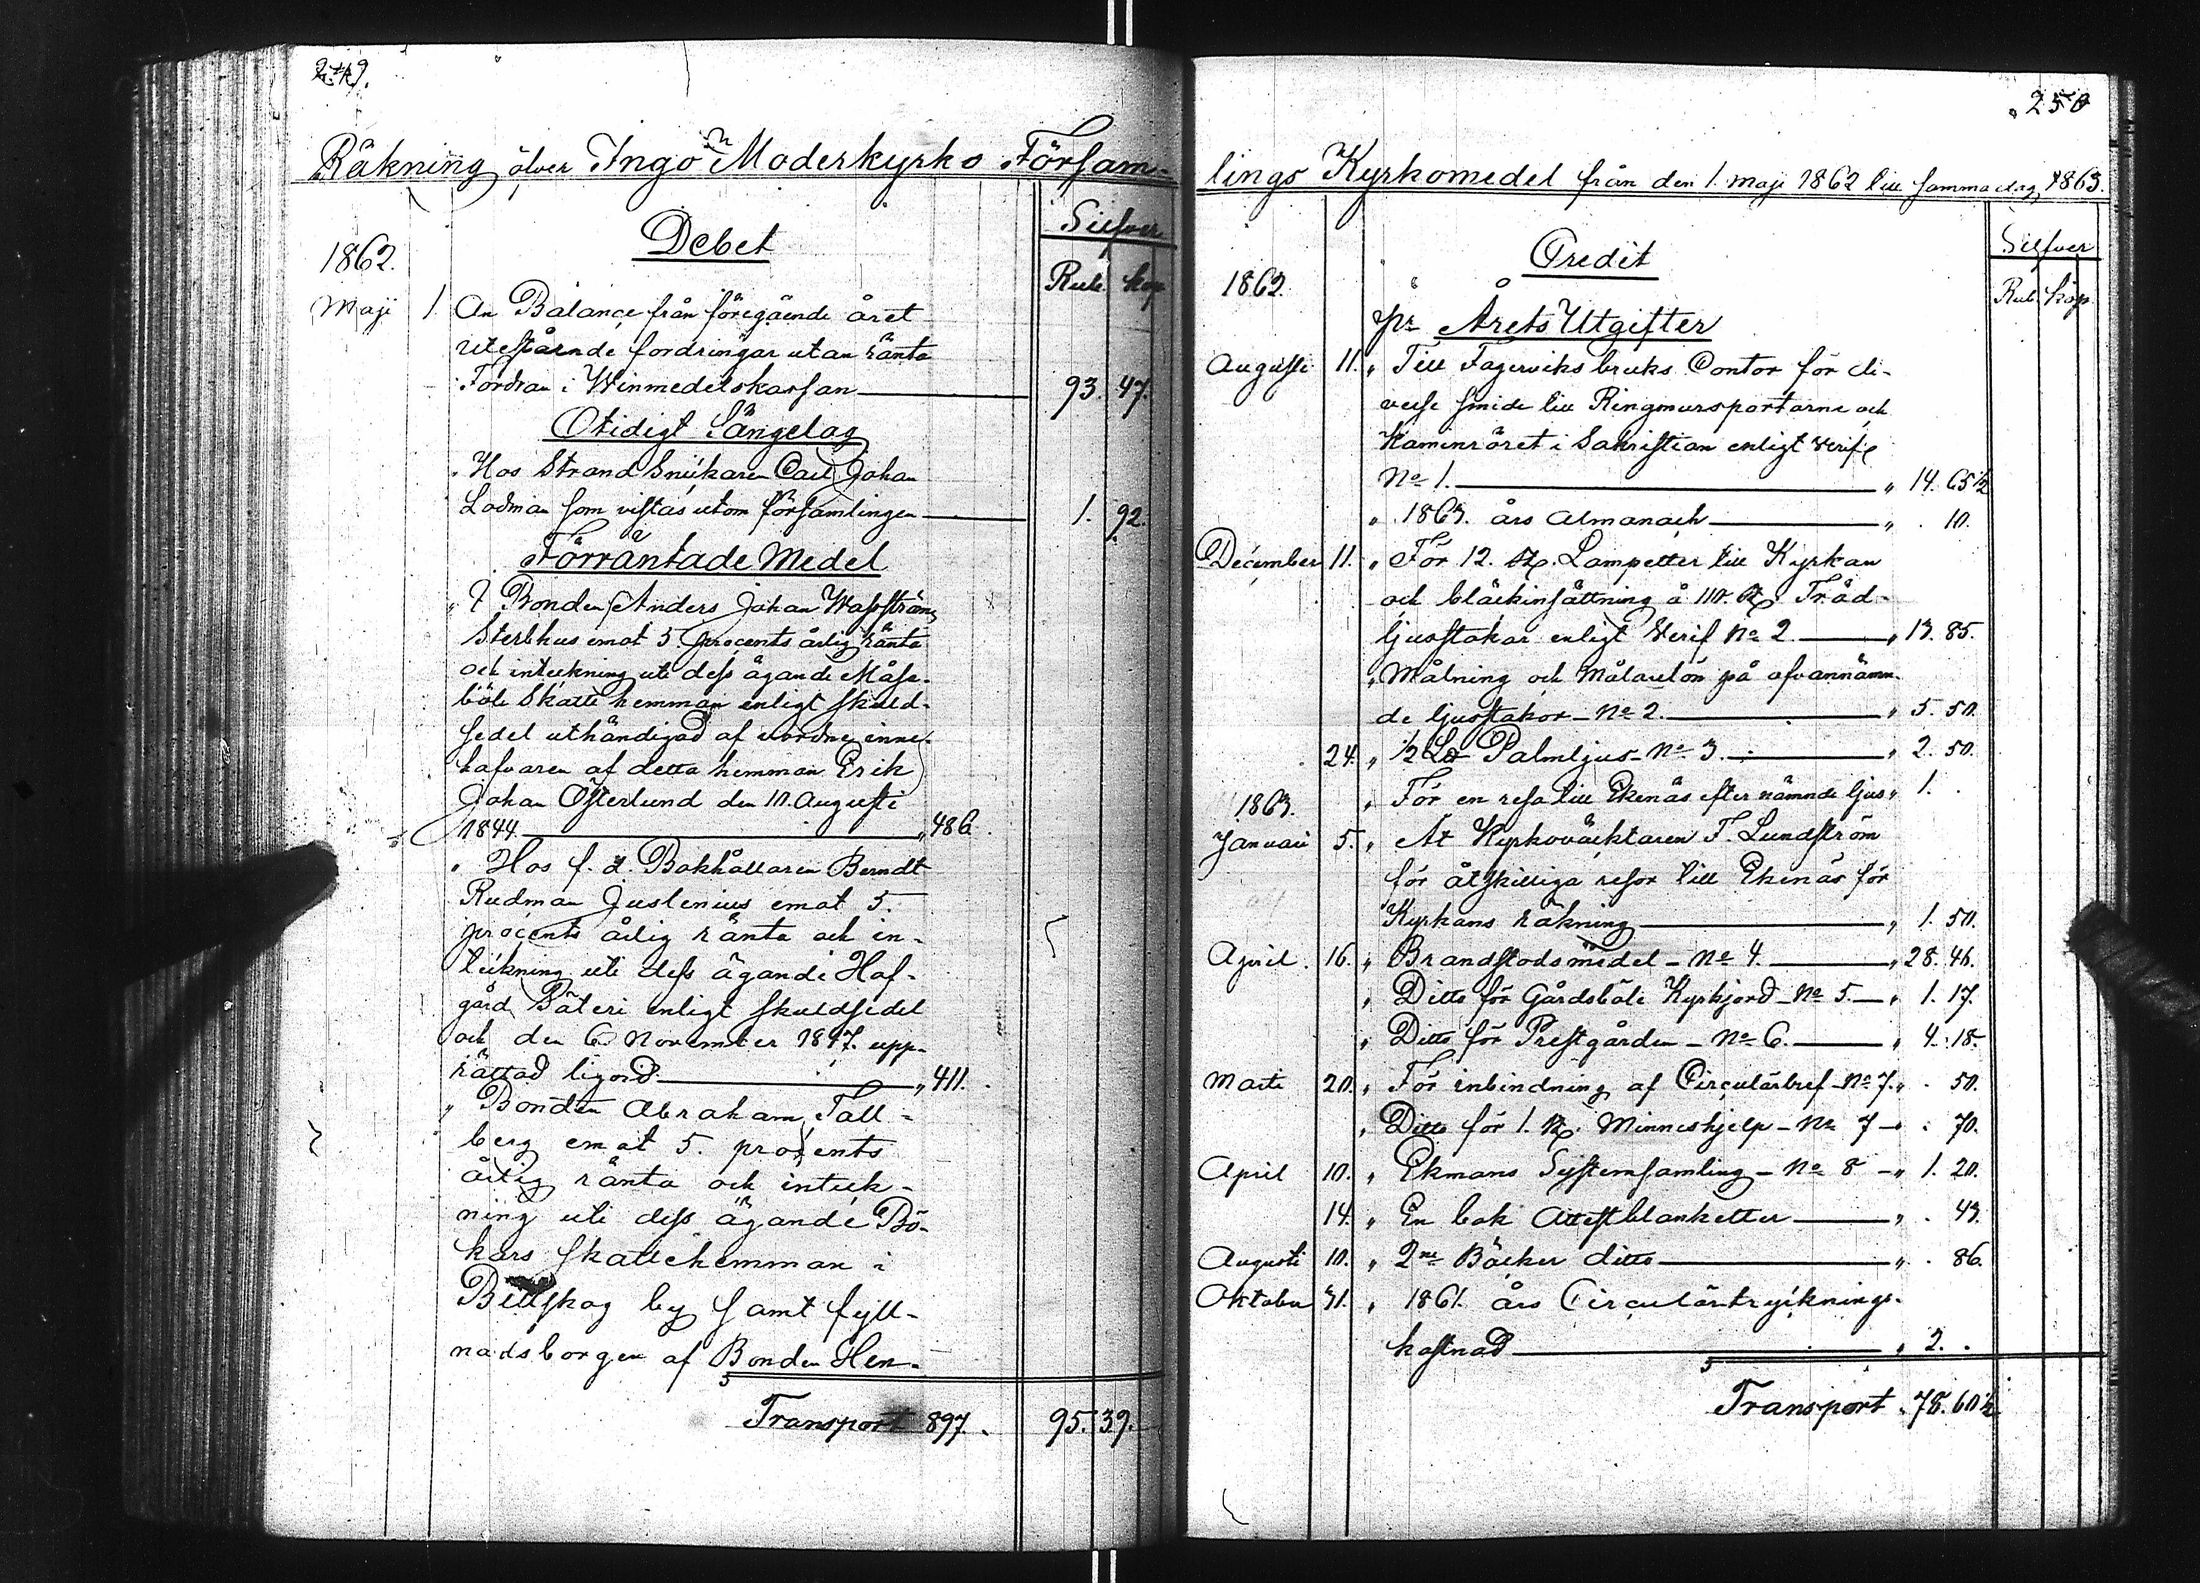 249.
Räkning öfver Ingo Moderkyrko Församˍ
Debet
Silfver
Rub. kop
1862.
Maji 1. An Balance från föregående året
utestående fordringar utan ränta
Fordran i Winmedelskassan 93. 47.
Otidigt Sängelag
" Hos Strand Snickaren Carl Johan
Lodman som vistas utom församlingen 1. 92.
Förräntade Medel
" I Bonden Anders Johan Wasström
Sterbhus emot 5. procents årlig ränta
och inteckning uti dess ägande Måse-
böle Skatte hemman enligt skuld-
sedel uthändigad af vordne inne-
hafvaren af detta hemman Erik
Johan Österlund den 10. Augusti
1844. " 486.
" Hos f. d. Bokhållaren Berndt
Rudman Juslenius emot 5.
procents årlig ränta och in-
teckning uti dess ägande Haf-
gård Säteri enligt skuldsedel
och den 6 November 1847. upp-
rättad ligord " 411.
" Bonden Abraham Tall-
berg emot 5. procents
årlig ränta och inteck-
ning uti dess ägande Bö-
kars skattehemman i
Billskog by samt fyll-
nadsborgen af Bonden Hen-
Transport 897. 95. 39.
250
lings Kyrkomedel från den 1. maji 1862 till samma dag 1863.
Credit
Silfver
Rub. kop.
1862.
pr Årets Utgifter
Augusti 11. " Till Fagerviks bruks Contor för di-
verse smide till Ringmursportarne och
Kaminröret i Sakristian enligt Verif
No 1. " 14. 65 1/2
" 1863. års Almanach " . 10.
December 11. " För 12. st. Lampetter till Kyrkan
och bläckinfattning å 110. st. Träd-
ljusstakar enligt Verif No 2. " 13. 85.
" Målning och Målarelön på ofvannämn-
de ljusstakor - No 2. " 5. 50.
24. " 1/2 Palmljus - No 3. " 2. 50.
1863. " För en resa till Ekenäs efter nämnde ljus " 1. .
Januari 5. " At Kyrkovächtaren F. Lundström
för åtskilliga resor till Ekenäs för
Kyrkans räkning " 1. 50.
April. 16. " Brandstodsmedel - No 4. " 28. 46.
" Ditto för Gårdsböle Kyrkjord - No 5. " 1. 17.
" Ditto för Prestgården - No 6. " 4. 18.
Marti 20. " För inbindning af Circulärbref - No 7. " . 50.
" Ditto för 1. st. Minneshjelp - No 7 - " . 70.
April 10. " Ekmans Systemsamling - No 8 - " 1. 20.
14. " En bok Attestblanketter " . 43.
Augusti 10. " 2ne Böcker ditto " . 86.
Oktober 31. " 1861. års Circulärtrycknings-
kostnad " 2. .
Transport " 78. 60 1/2